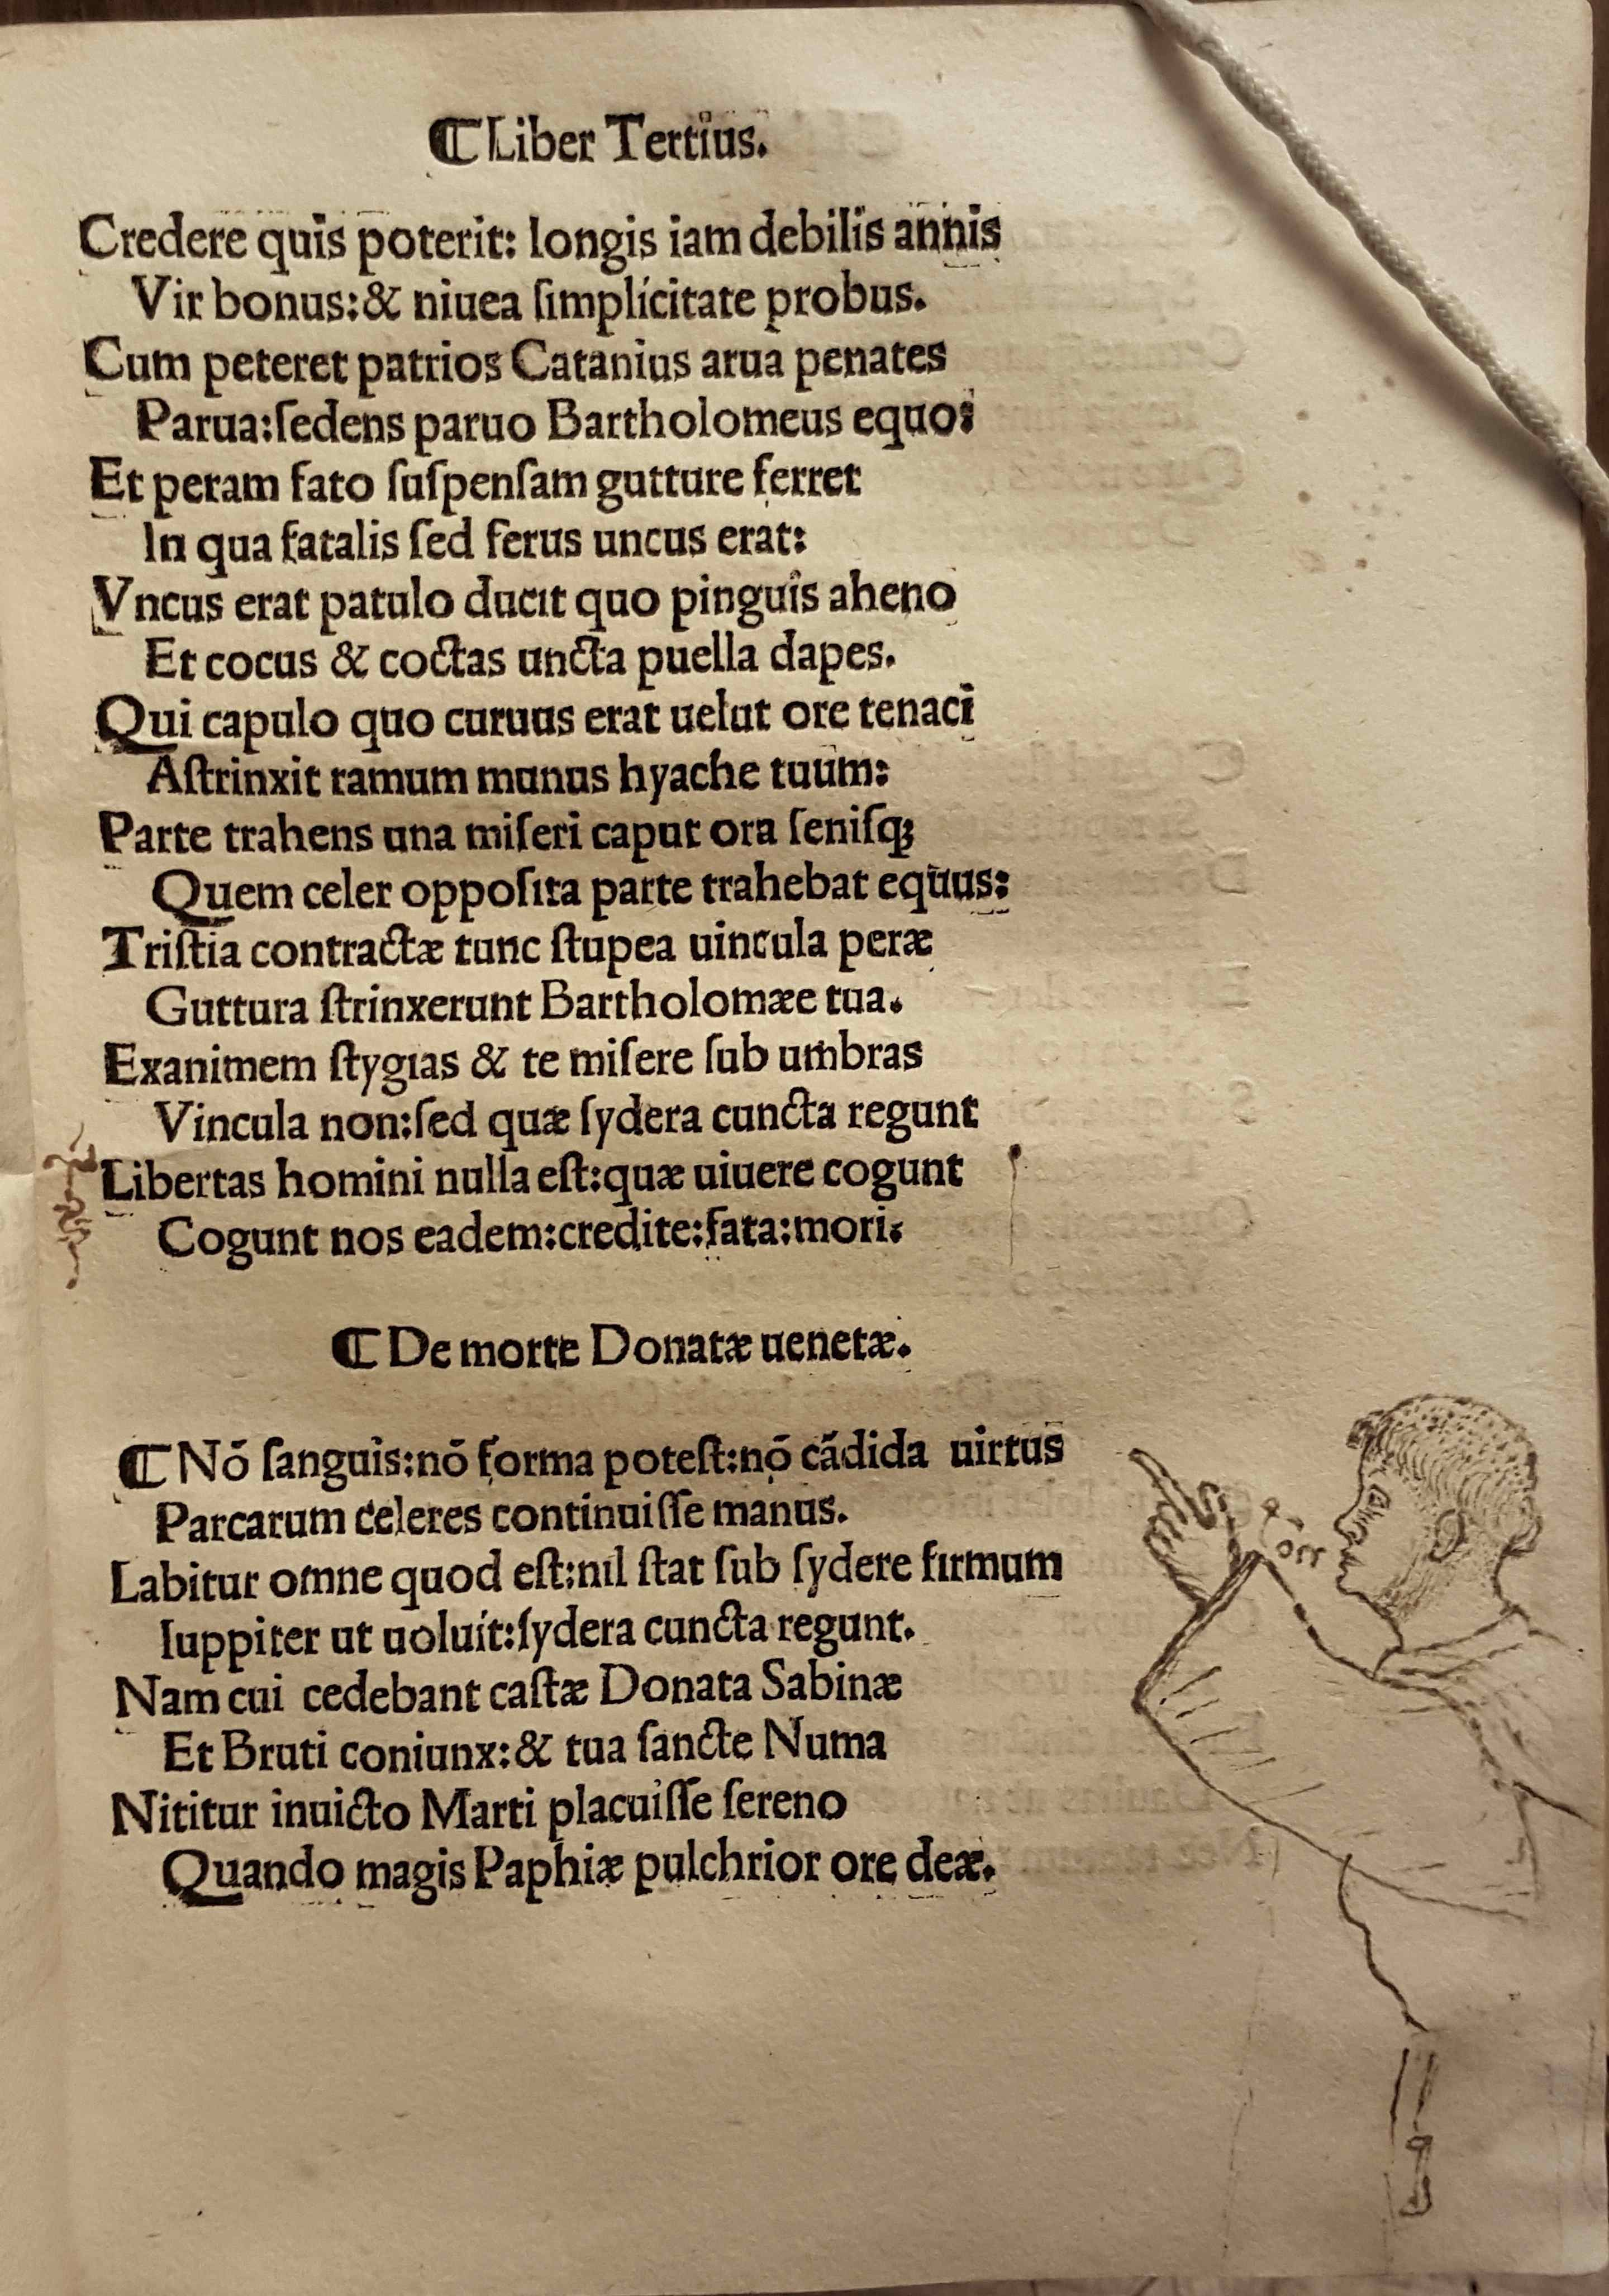 ¶ Liber Tertius.
Credere quis poterit: longis iam debilis annis
Vir bonus:& niuea ſimplicitate probus.
Cum peteret patrios Catanius arua penates
Parua:ſedens paruo Bartholomeus equo:
Et peram fato ſuſpenſam gutture ferret
In qua fatalis ſed ferus uncus erat:
Vncus erat patulo ducit quo pinguis aheno
Et cocus & coctas uncta puella dapes.
Qui capulo quo curuus erat uelut ore tenaci
Aſtrinxit ramum munus hyache tuum:
Parte trahens una miſeri caput ora ſeniſqꝫ
Quem celer oppoſita parte trahebat equus:
Triſtia contractæ tunc ſtupea uincula peræ
Guttura ſtrinxerunt Bartholomæe tua.
Exanimem ſtygias & te miſere ſub umbras
Vincula non:ſed quæ ſydera cuncta regunt
Libertas homini nulla eſt:quæ uiuere cogunt
Cogunt nos eadem:credite:fata:mori.
¶ De morte Donatæ uenetæ.
¶ Nō ſanguis:nō forma poteſt:nō cādida uirtus
Parcarum celeres continuiſſe manus.
Labitur omne quod eſt:nil ſtat ſub ſydere firmum
Iuppiter ut uoluit:ſydera cuncta regunt.
Nam cui cedebant caſtæ Donata Sabinæ
Et Bruti coniunx:& tua ſancte Numa
Nititur inuicto Marti placuiſſe ſereno
Quando magis Paphiæ pulchrior ore deæ.